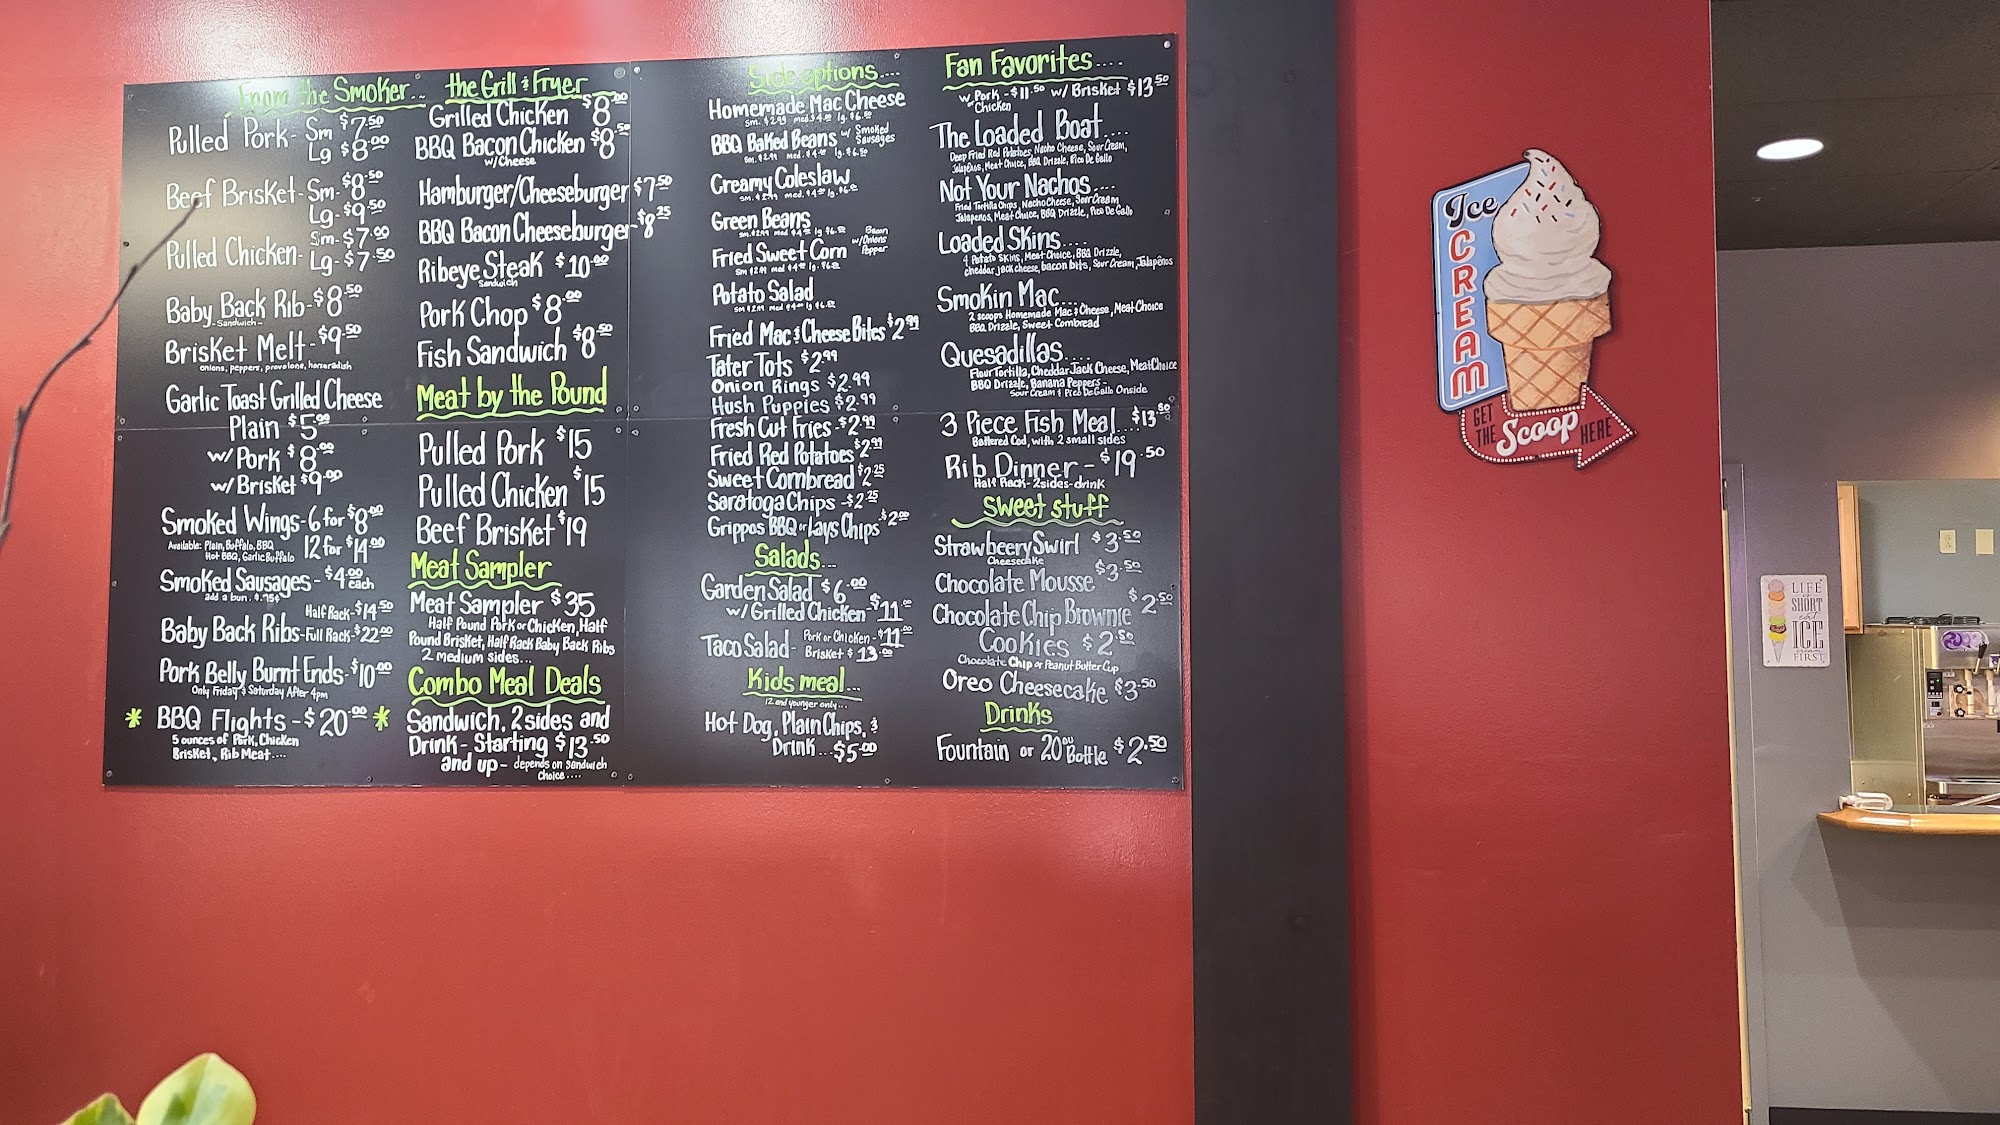 From the Smoker...
Pulled Pork- Sm $7.50
Lg $8.00
Beef Brisket- Sm- $8.50
Lg- $9.50
Pulled Chicken- Sm- $7.00
Lg- $7.50
Baby Back Rib- $8.50
-Sandwich-
Brisket Melt- $9.50
onions, peppers, provolone, horseradish
Garlic Toast Grilled Cheese
Plain $5.00
w/ Pork $8.00
w/ Brisket $9.00
Smoked Wings- 6 for $8.00
12 for $14.00
Available: Plain, Buffalo, BBQ
Hot BBQ, Garlic Buffalo
Smoked Sausages- $4.00 each
add a bun. $.75¢
Baby Back Ribs- Half Rack- $14.50
Full Rack- $22.00
Pork Belly Burnt Ends- $10.00
Only Friday & Saturday After 4pm
* BBQ Flights - $20.00 *
5 ounces of Pork, Chicken
Brisket, Rib Meat....
the Grill & Fryer
Grilled Chicken $8.00
BBQ Bacon Chicken $8.50
w/Cheese
Hamburger/Cheeseburger $7.50
BBQ Bacon Cheeseburger- $8.25
Ribeye Steak $10.00
Sandwich
Pork Chop $8.00
Fish Sandwich $8.50
Meat by the Pound
Pulled Pork $15
Pulled Chicken $15
Beef Brisket $19
Meat Sampler
Meat Sampler $35
Half Pound Pork or Chicken, Half
Pound Brisket, Half Rack Baby Back Ribs
2 Medium sides...
Combo Meal Deals
Sandwich, 2 sides and
Drink- Starting $13.50
and up- depends on sandwich
choice....
Side options....
Homemade Mac Cheese
sm. $2.99 med. $4.00 lg. $6.50
BBQ Baked Beans w/ Smoked Sausages
sm. $2.99 med. $4.00 lg. $6.50
Creamy Coleslaw
sm. $2.99 med. $4.00 lg. $6.50
Green Beans
sm. $2.99 med. $4.00 lg. $6.50
Fried Sweet Corn w/Onions Bacon Pepper
sm $2.99 med $4.00 lg. $6.50
Potato Salad
sm $2.99 med $4.00 lg $6.50
Fried Mac & Cheese Bites $2.99
Tater Tots $2.99
Onion Rings $2.99
Hush Puppies $2.99
Fresh Cut Fries- $2.99
Fried Red Potatoes $2.99
Sweet Cornbread $2.25
Saratoga Chips - $2.25
Grippos BBQ or Lays Chips $2.00
Salads...
Garden Salad $6.00
w/ Grilled Chicken- $11.00
Taco Salad- Pork or Chicken- $11.00
Brisket $13.00
Kids meal...
12 and younger only...
Hot Dog, Plain Chips, &
Drink... $5.00
Fan Favorites....
w/ Pork or Chicken - $11.50 w/ Brisket $13.50
The Loaded Boat....
Deep Fried Red Potatoes, Nacho Cheese, Sour Cream,
Jalapeños, Meat Choice, BBQ Drizzle, Pico De Gallo
Not Your Nachos....
Fried Tortilla Chips, Nacho Cheese, Sour Cream
Jalapenos, Meat Choice, BBQ Drizzle, Pico De Gallo
Loaded Skins....
4 Potato Skins, Meat Choice, BBQ Drizzle,
cheddar jack cheese, bacon bits, Sour Cream, Jalapeños
Smokin Mac....
2 scoops Homemade Mac & Cheese, Meat Choice
BBQ Drizzle, Sweet Cornbread
Quesadillas....
Flour Tortilla, Cheddar Jack Cheese, Meat Choice
BBQ Drizzle, Banana Peppers -
Sour Cream & Pico De Gallo Onside
3 Piece Fish Meal... $13.50
Battered Cod, with 2 small sides
Rib Dinner - $19.50
Half Rack- 2 sides- drink
Sweet Stuff
Strawbeery Swirl $3.50
Cheesecake
Chocolate Mousse $3.50
Chocolate Chip Brownie $2.50
Cookies $2.50
Chocolate Chip or Peanut Butter Cup
Oreo Cheesecake $3.50
Drinks
Fountain or 20 ou Bottle $2.50
Ice
CREAM
GET THE Scoop HERE
LIFE
is
SHORT
eat
ICE
cream
FIRST